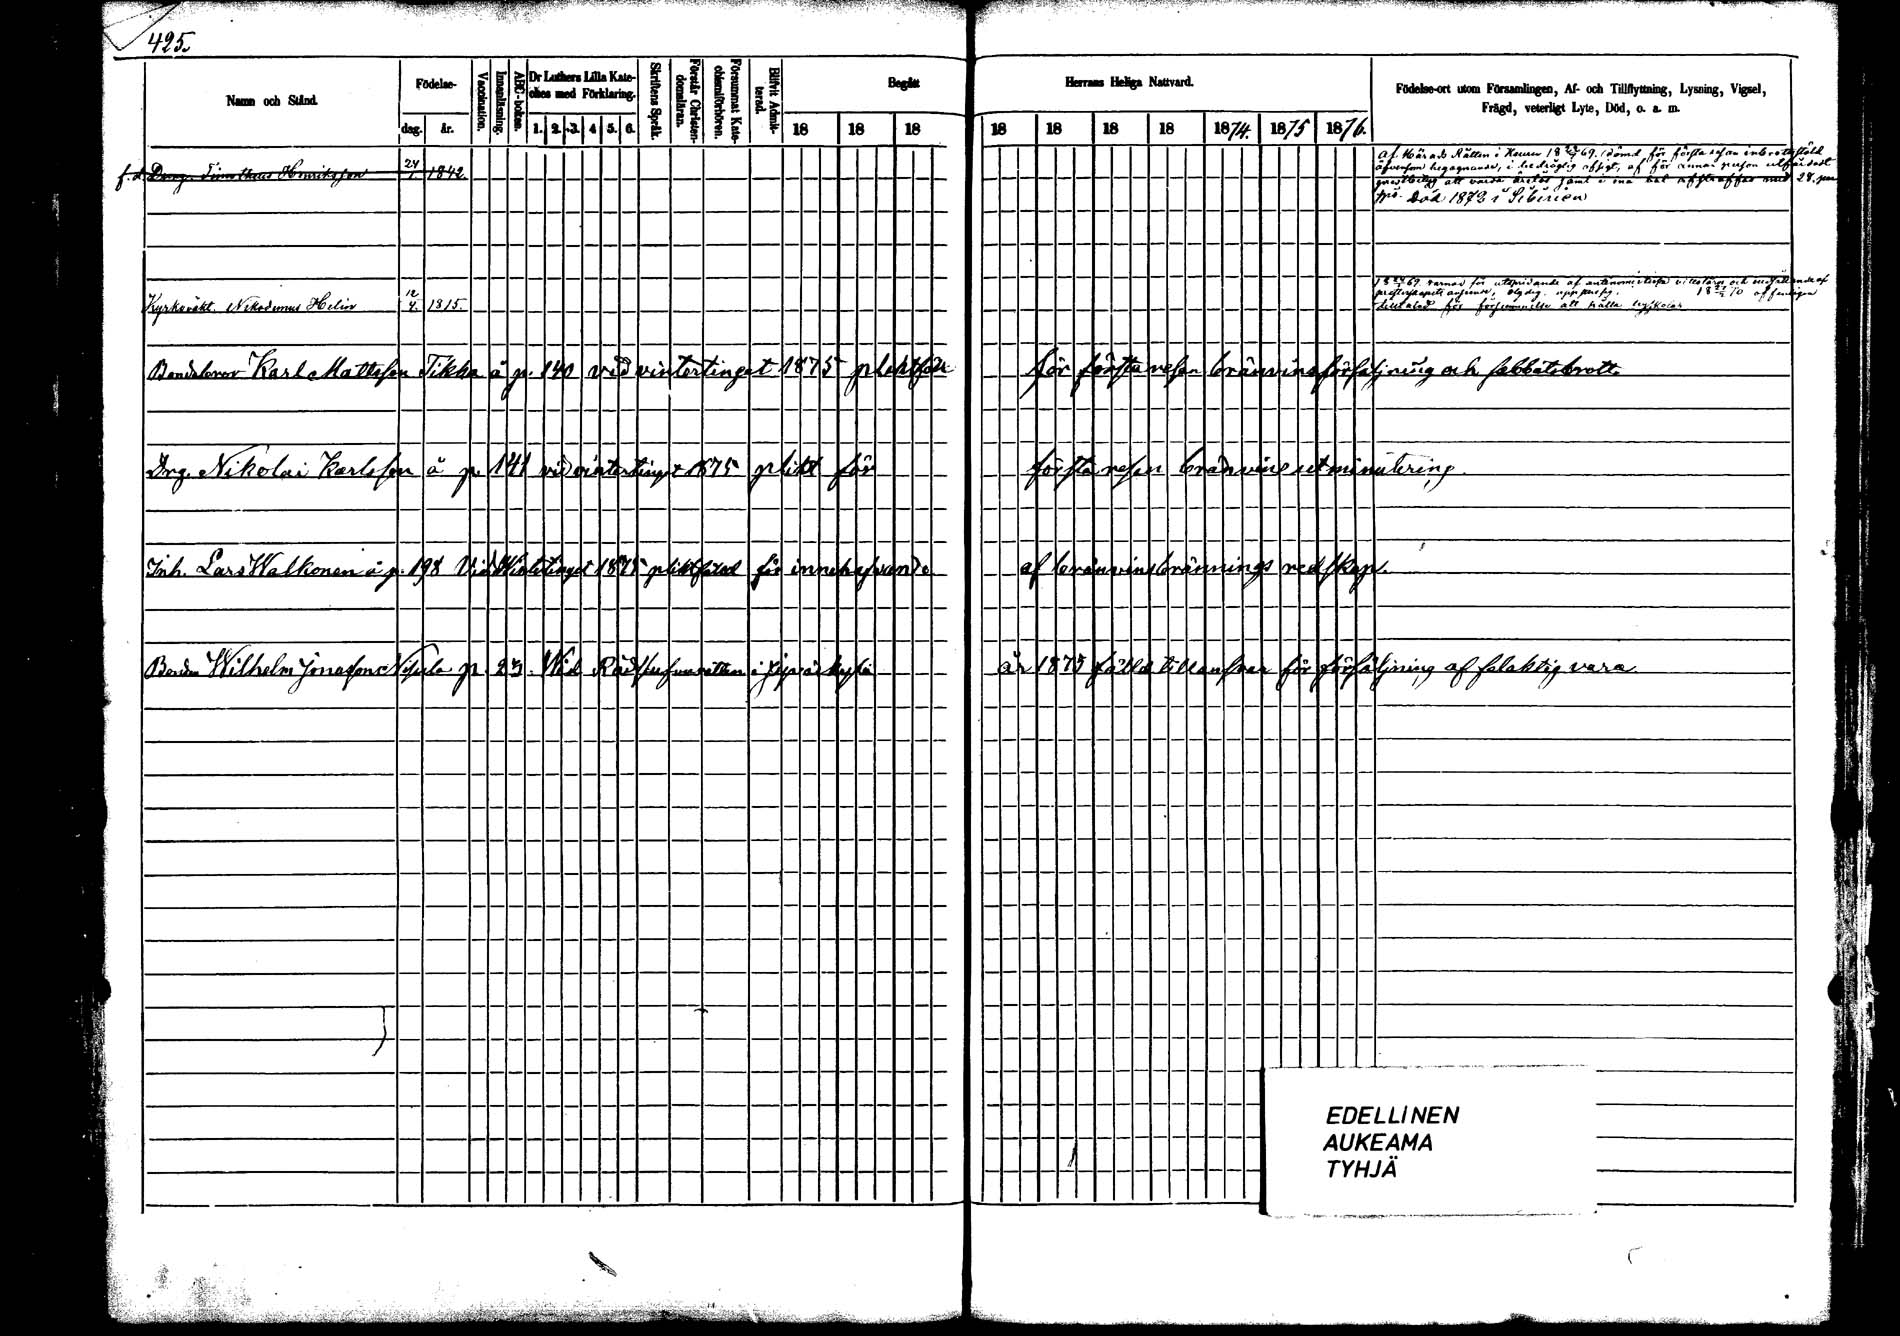 425.
Namn och Stånd.
Födelse-
dag. år.
Vaccination.
Innanläsning.
ABC-boken.
Dr Luthers Lilla Kate-
ches med Förklaring.
1. 2. 3. 4 5. 6.
Skriftens Språk.
Förstår Christen-
domsläran.
Försummat Kate-
chismiförhören.
Blifvit Admit-
terad.
Begått Herrans Heliga Nattvard.
18 18 18 18 18 18 18 1874. 1875 1876.
Födelse-ort utom Församlingen, Af- och Tillflyttning, Lysning, Vigsel,
Frägd, veterligt Lyte, Död, o. a. m.
f. d. Dreng. Timotheus Henriksson 24/1. 1842.
af Härads Rätten i 69. dömd för första resan inbrottsstöld
för annan resan
att varda ärelös samt afstraffas med 28. par
spö. Död 1872 i Siberien
Kyrkväkt. Nikodemus Helin 12/4. 1815.
69. varnad för utspridande af
18 70 offentligen
tilltalad för försummelse att hålla
Bondeboren Karl Mattsson Tikka å p. 140 vid vintertinget 1875 pliktfäld för första resan bränvinsförsäljning och sabbatsbrott.
Drg. Nikolai Karlsson å p. 141 vid vintertinget 1875 plikt för första resan bränvinsutminutering.
Inh. Lars Walkonen å p. 198 Vid Wintertinget 1875 pliktfäld för innehafvande af bränvinsbrännings redskap.
Bonden Wilhelm Jonasson p. 23. Wid Rådstufvurätten i Jyväskylä år 1875 fälld till ansvar för försäljning af felaktig vara
EDELLINEN
AUKEAMA
TYHJÄ